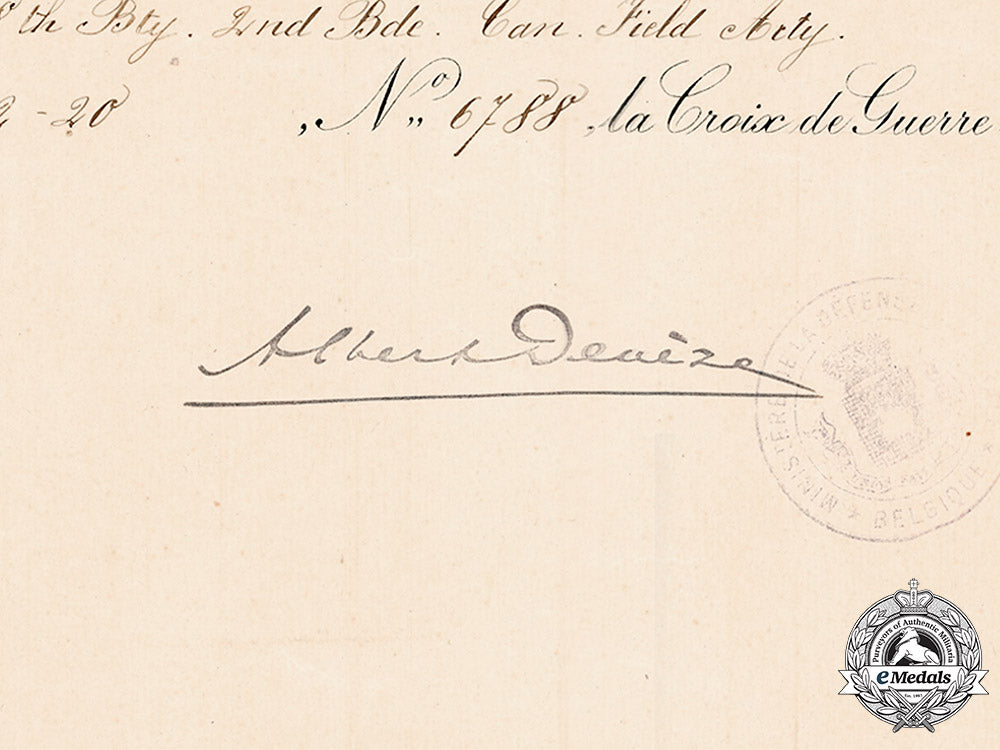 8th Bty. 2nd Bde. Can. Field Arty.
2-20 „No„ 6788 „la Croix de Guerre
Albert Devèze
MINISTERE DE LA DEFENS
BELGIQUE
Purveyors of Authentic Militaria
eMedals
Est. 1967